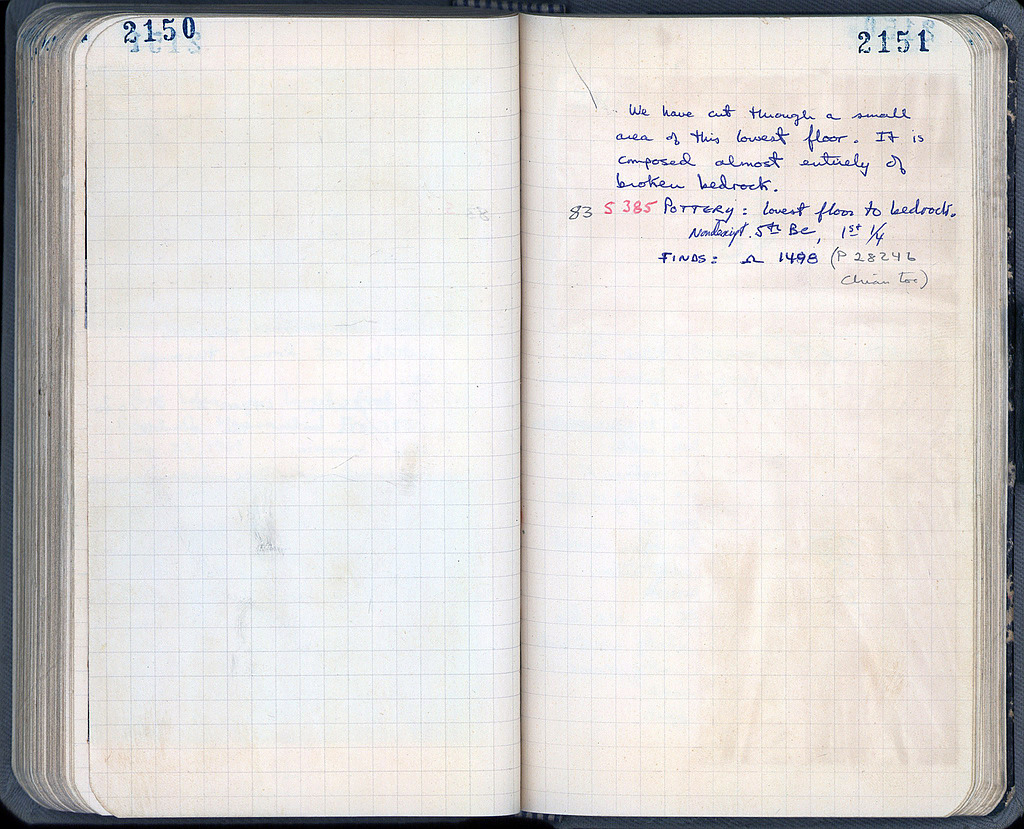 2150
2151
We have cut through a small
area of this lowest floor. It is
composed almost entirely of
broken bedrock.
83 S 385 POTTERY: lowest floor to bedrock.
Nondescript. 5th BC, 1st 1/4
FINDS: Ω 1498 (P 28246
Chian toe)